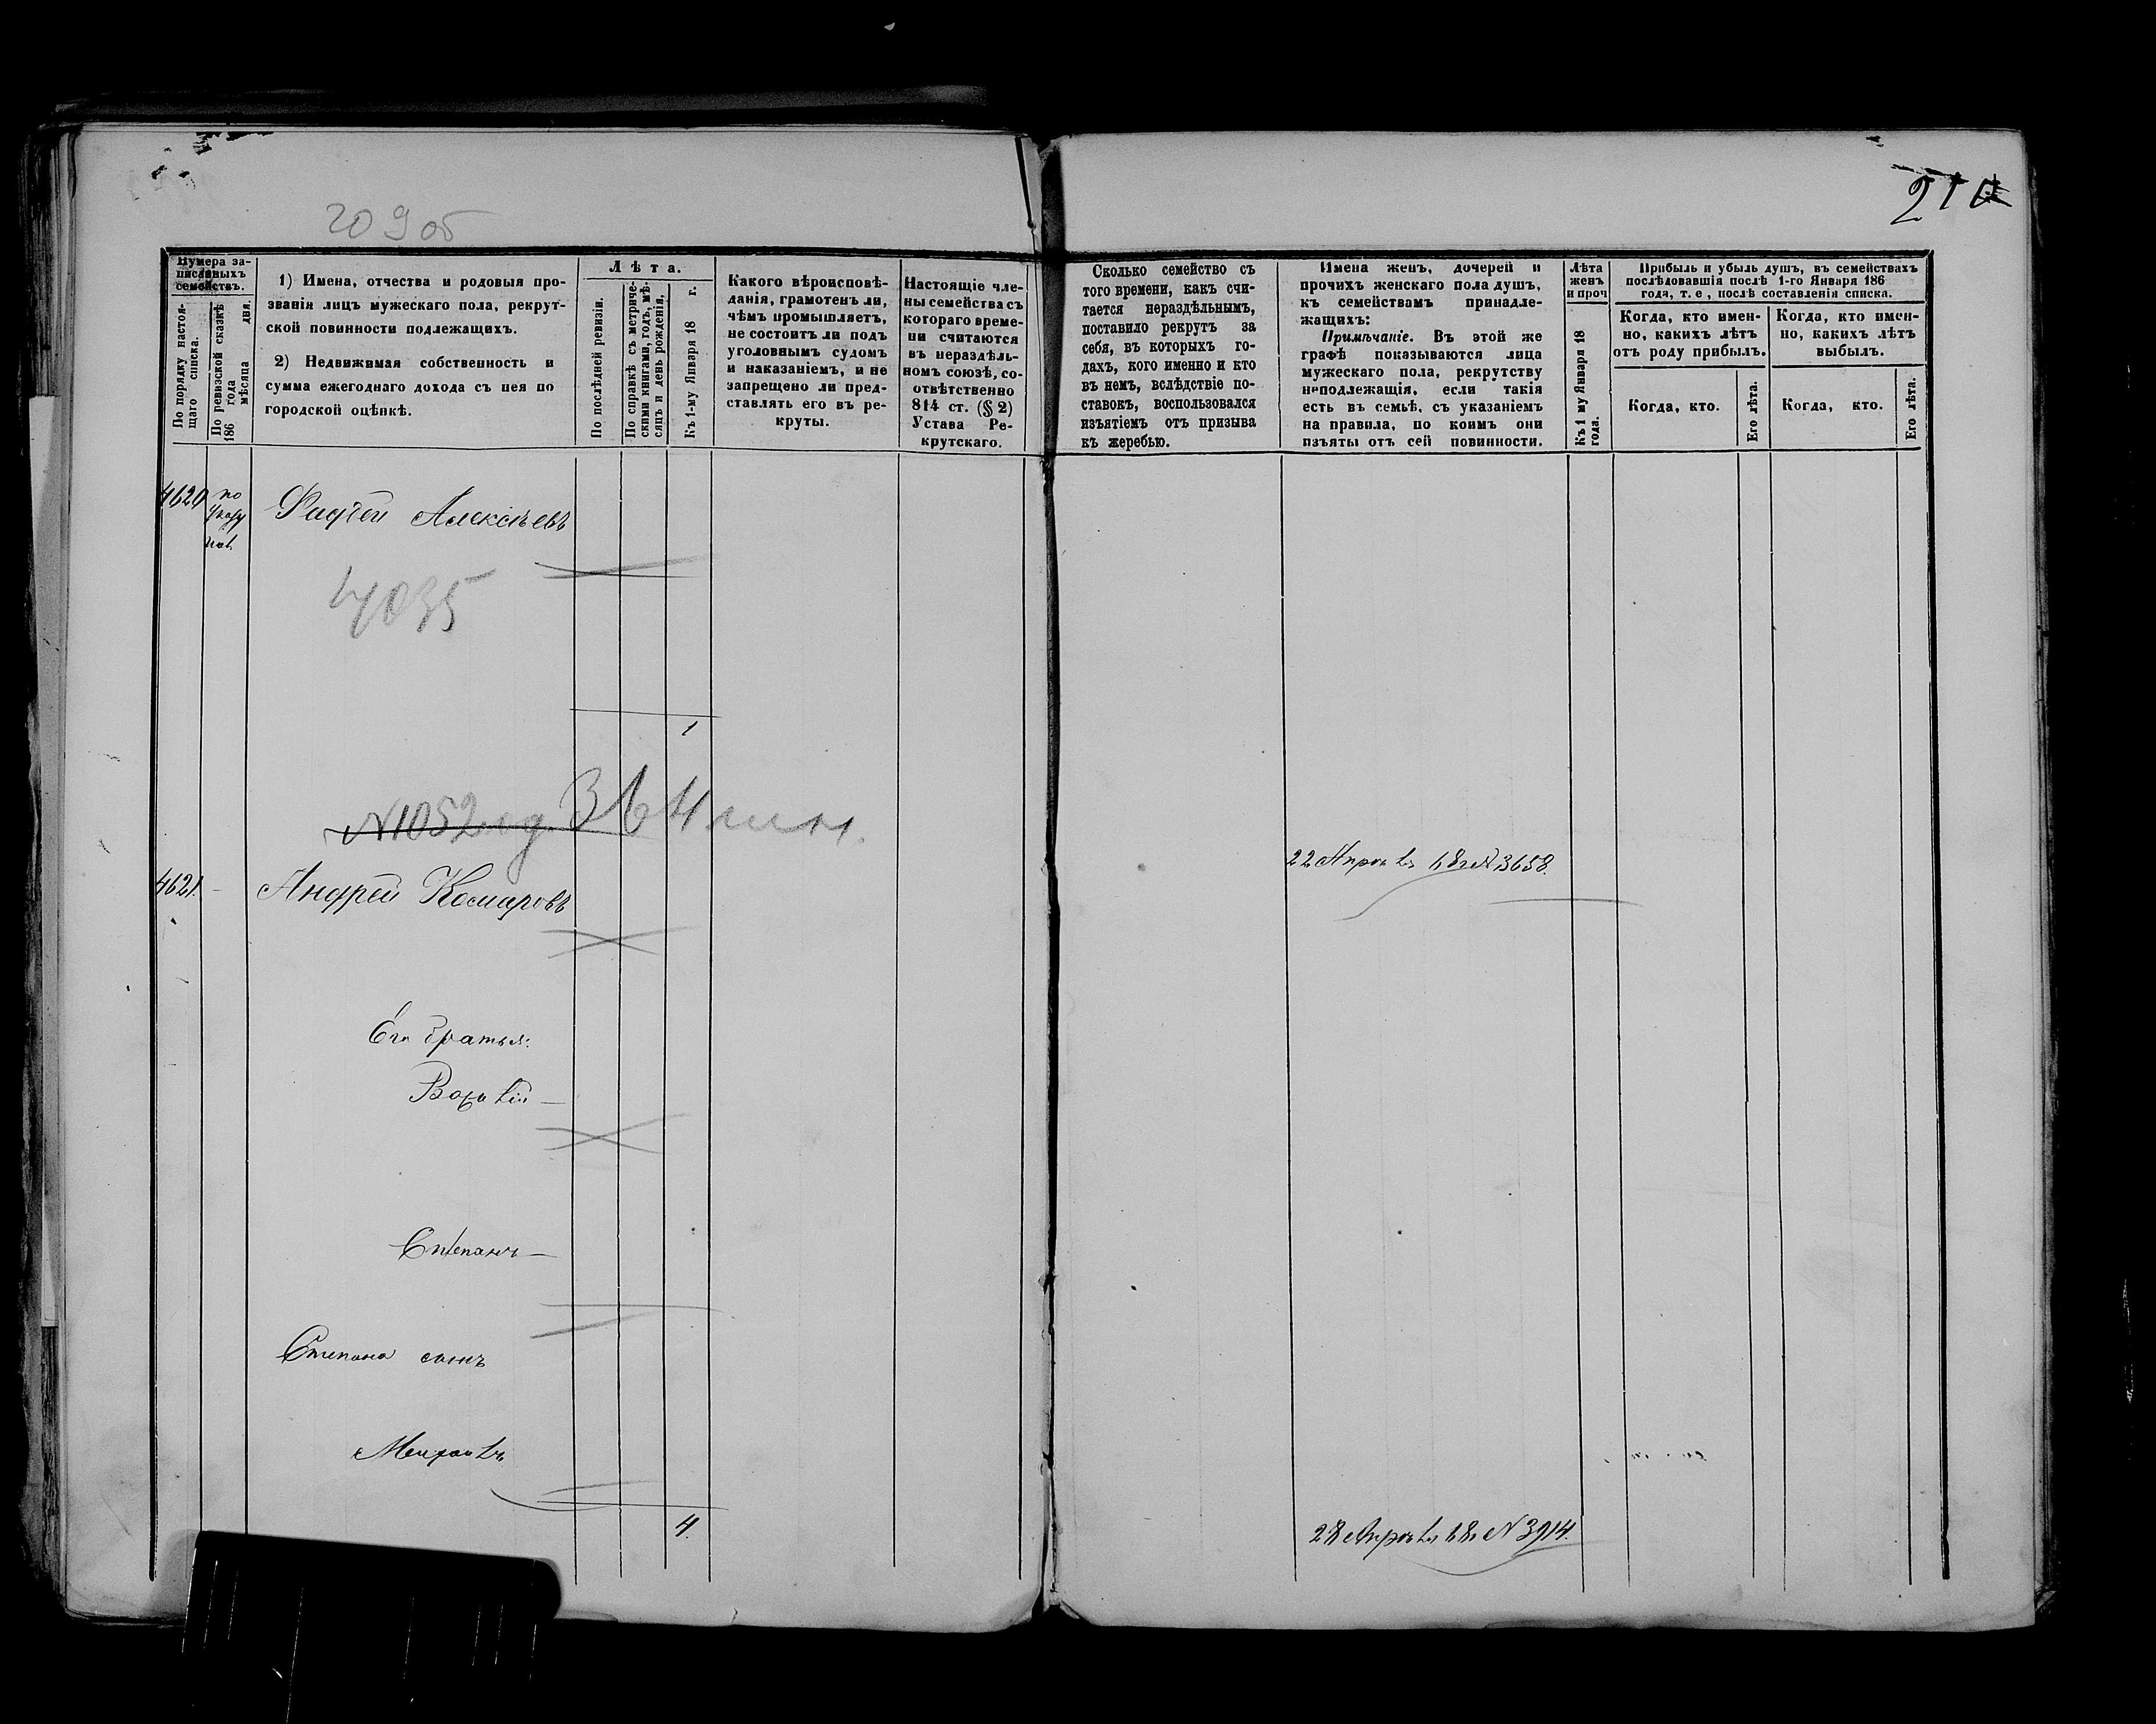 209 об
210
Нумера за-
писанныхъ
семействъ.
По порядку настоя-
щаго списка.
По ревизской сказкѣ
186 года
мѣсяца дня.
1) Имена, отчества и родовыя про-
званія лицъ мужескаго пола, рекрут-
ской повинности подлежащихъ.
2) Недвижимая собственность и
сумма ежегоднаго дохода съ нея по
городской оцѣнкѣ.
Лѣта.
По послѣдней ревизіи.
По справкѣ съ метриче-
скими книгами, годъ, мѣ-
сяцъ и день рожденія.
Къ 1-му Января 18 г.
Какого вѣроисповѣ-
данія, грамотенъ ли,
чѣмъ промышляетъ,
не состоитъ ли подъ
уголовнымъ судомъ
и наказаніемъ, и не
запрещено ли пред-
ставлять его въ ре-
круты.
Настоящіе чле-
ны семейства съ
котораго време-
ни считаются
въ нераздѣль-
номъ союзѣ, со-
отвѣтственно
814 ст. (§ 2)
Устава Ре-
крутскаго.
Сколько семейство съ
того времени, какъ счи-
тается нераздѣльнымъ,
поставило рекрутъ за
себя, въ которыхъ го-
дахъ, кого именно и кто
въ немъ, вслѣдствіе по-
ставокъ, воспользовался
изъятіемъ отъ призыва
къ жеребью.
Имена женъ, дочерей и
прочихъ женскаго пола душъ,
къ семействамъ принадле-
жащихъ:
Примѣчаніе. Въ этой же
графѣ показываются лица
мужескаго пола, рекрутству
неподлежащія, если такія
есть въ семьѣ, съ указаніемъ
на правила, по коимъ они
изъяты отъ сей повинности.
Лѣта
женъ
и проч
Къ 1 му Января 18
года.
Прибыль и убыль душъ, въ семействахъ
послѣдовавшія послѣ 1-го Января 186
года, т. е, послѣ составленія списка.
Когда, кто имен-
но, какихъ лѣтъ
отъ роду прибылъ.
Когда, кто.
Его лѣта.
Когда, кто имен-
но, какихъ лѣтъ
выбылъ.
Когда, кто.
Его лѣта.
4620 по
указу
Фадѣй Алексѣевъ
4035
1
N1052
22 Апрѣля 68 г N 3658.
4621. Андрей Комаровъ
Его братья:
Василій
Степанъ
Степана сынъ
Михаилъ
4.
28 Апрѣля 68 г N 3914.